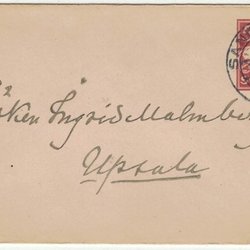 öken Ingrid Malmberg
Upsala